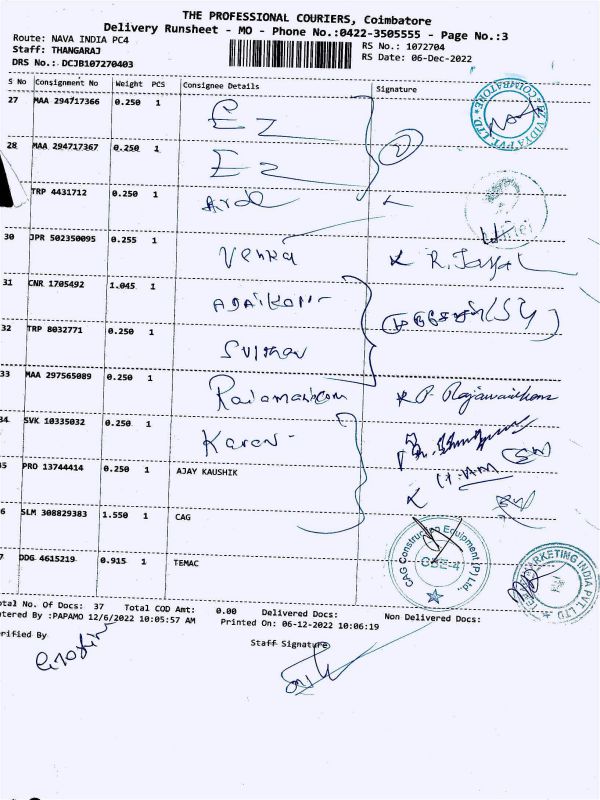 THE PROFESSIONAL COURIERS, Coimbatore
Delivery Runsheet - MO - Phone No.:0422-3505555 - Page No.:3
Route: NAVA INDIA PC4
RS No.: 1072704
Staff: THANGARAJ
RS Date: 06-Dec-2022
DRS No.: DCJB107270403
S No Consignment No Weight PCS Consignee Details Signature
27 MAA 294717366 0.250 1 Ez
28 MAA 294717367 0.250 1 Ez
TRP 4431712 0.250 1
30 JPR 502350095 0.255 1 Venka
31 CNR 1705492 1.045 1
32 TRP 8032771 0.250 1
33 MAA 297565089 0.250 1 Rajamanickam
34 SVK 10335032 0.250 1 Karan
35 PRO 13744414 0.250 1 AJAY KAUSHIK
6 SLM 308829383 1.550 1 CAG
CAG Construction Equipment (P) Ltd.,
CBE-4
7 DDG 4615219 0.915 1 TEMAC
MARKETING INDIA PVT. LTD
otal No. Of Docs: 37 Total COD Amt: 0.00 Delivered Docs: Non Delivered Docs:
ntered By :PAPAMO 12/6/2022 10:05:57 AM Printed On: 06-12-2022 10:06:19
erified By Staff Signature